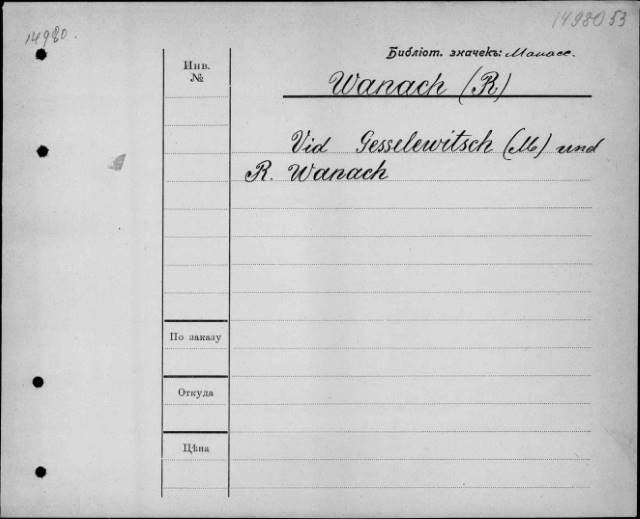 14980.
1498053
Библіот. значекъ: Манасе.
Инв.
№
Wanach (R)
Vid Gesselewitsch (M) und
R. Wanach
По заказу
Откуда
Цѣна